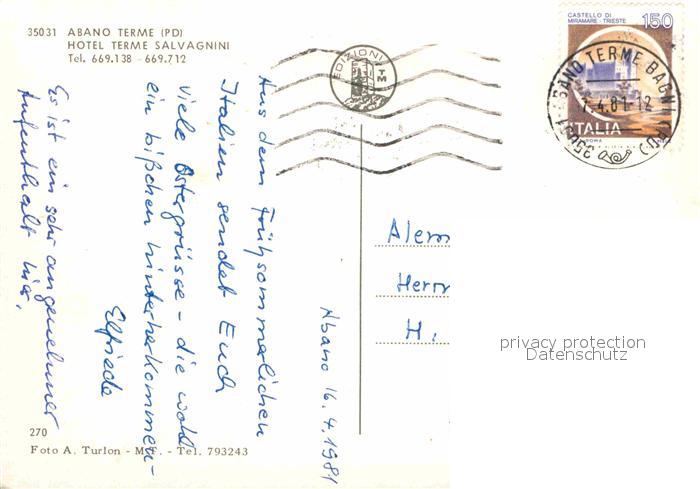 35031 ABANO TERME (PD)
HOTEL TERME SALVAGNINI
Tel. 669.138 - 669.712
EDIZIONI
TM
CASTELLO DI
MIRAMARE - TRIESTE
150
ITALIA
ABANO TERME BAGNI (PD)
7.4.81-12
35031
Abano 16.4.1981
Aus dem Frühsommerlichen
Italien sendet Euch
viele Ostergrüsse - die wohl
ein bißchen hinterherkommen -
Elfriede
Es ist ein sehr angenehmer
Aufenthalt hier.
Alem
Herrn
H.
privacy protection
Datenschutz
270
Foto A. Turlon - M.F. - Tel. 793243